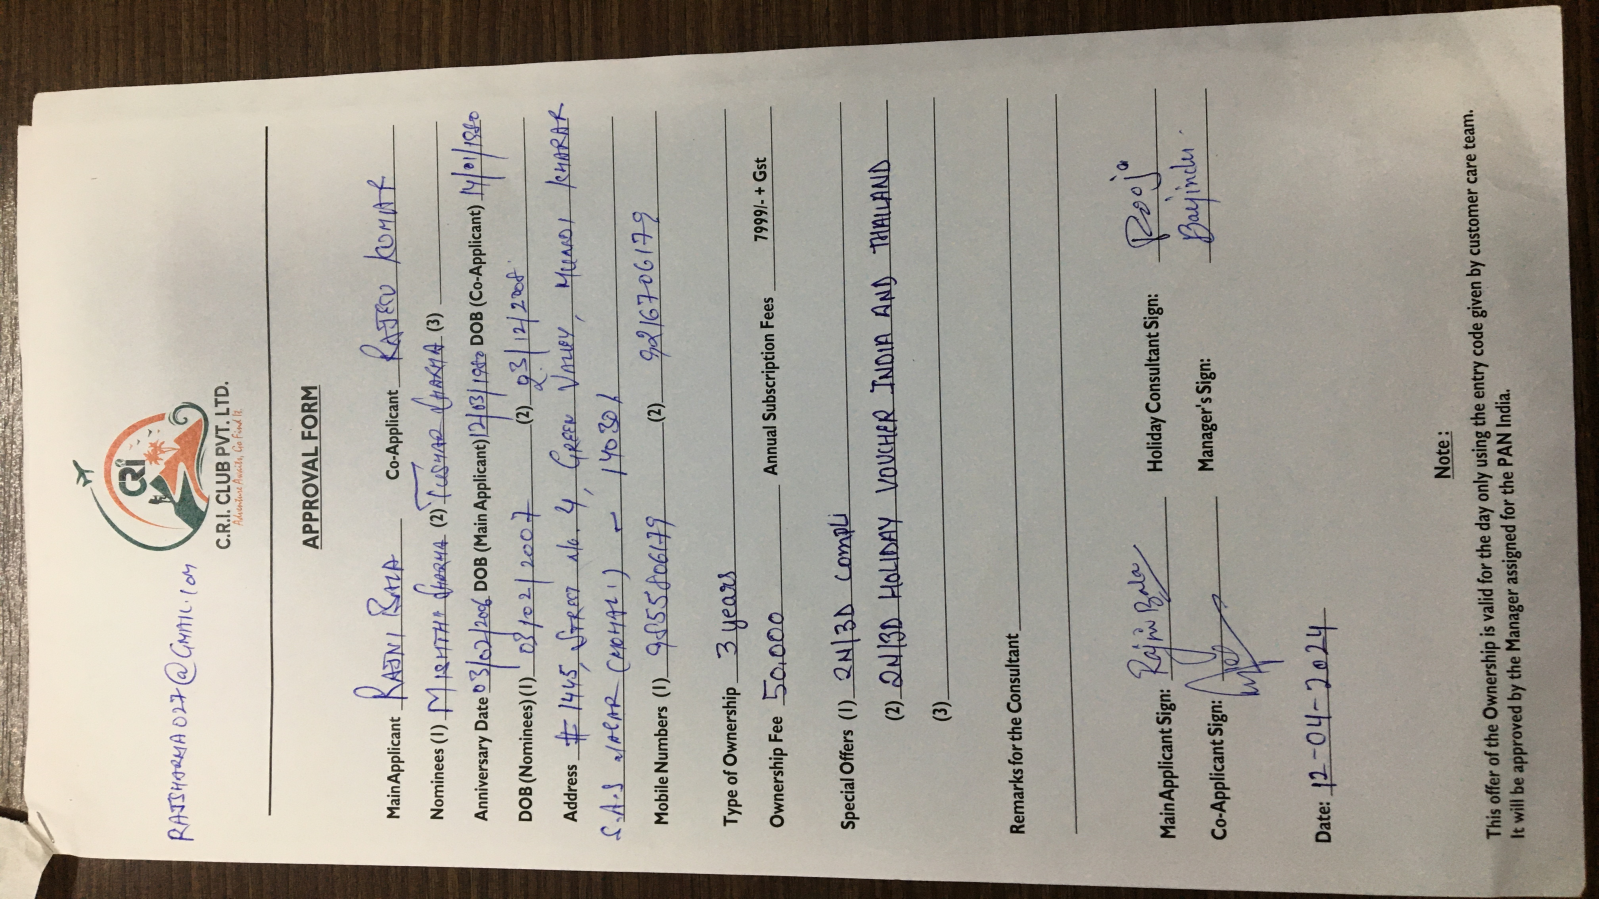 RAJSHARMA027@GMAIL.COM
CRI
C.R.I. CLUB PVT. LTD.
Adventure Awaits, Go Find It
APPROVAL FORM
Main Applicant RAJNI BALA Co-Applicant RAJEEV KUMAR
Nominees (1) MISHTHI SHARMA (2) TUSHAR SHARMA (3)
Anniversary Date 03/02/2006 DOB (Main Applicant) 12/03/1980 DOB (Co-Applicant) 14/01/1980
DOB (Nominees) (1) 03/02/2007 (2) 03/12/2008
Address # 1445, STREET NO. 4, GREEN VALLEY, MUNDI KHARAR
S.A.S NAGAR (MOHALI) - 140301
Mobile Numbers (1) 9855806179 (2) 9216706179
Type of Ownership 3 years
Ownership Fee 50,000 Annual Subscription Fees 7999/- + Gst
Special Offers (1) 2N/3D Compli
(2) 2N/3D HOLIDAY VOUCHER INDIA AND THAILAND
(3)
Remarks for the Consultant
Main Applicant Sign: Rajni Bala Holiday Consultant Sign: Pooja
Co-Applicant Sign: Manager's Sign:
Date: 12-04-2024
Note :
This offer of the Ownership is valid for the day only using the entry code given by customer care team.
It will be approved by the Manager assigned for the PAN India.